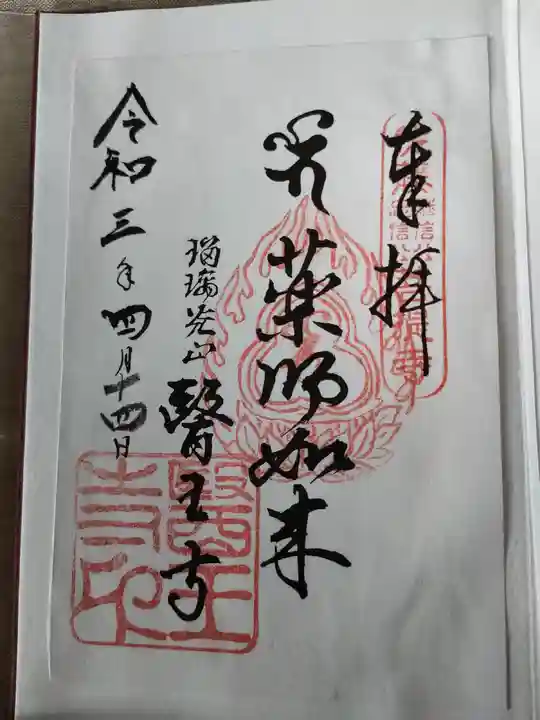 奉拝
薬師如来
瑠璃光山
醫王寺
令和三年四月十四日
醫王寺印